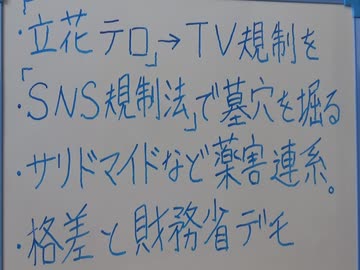 ・「立花テロ」→TV規制を
・「SNS規制法」で墓穴を掘る
・サリドマイドなど薬害連系。
・格差と財務省デモ